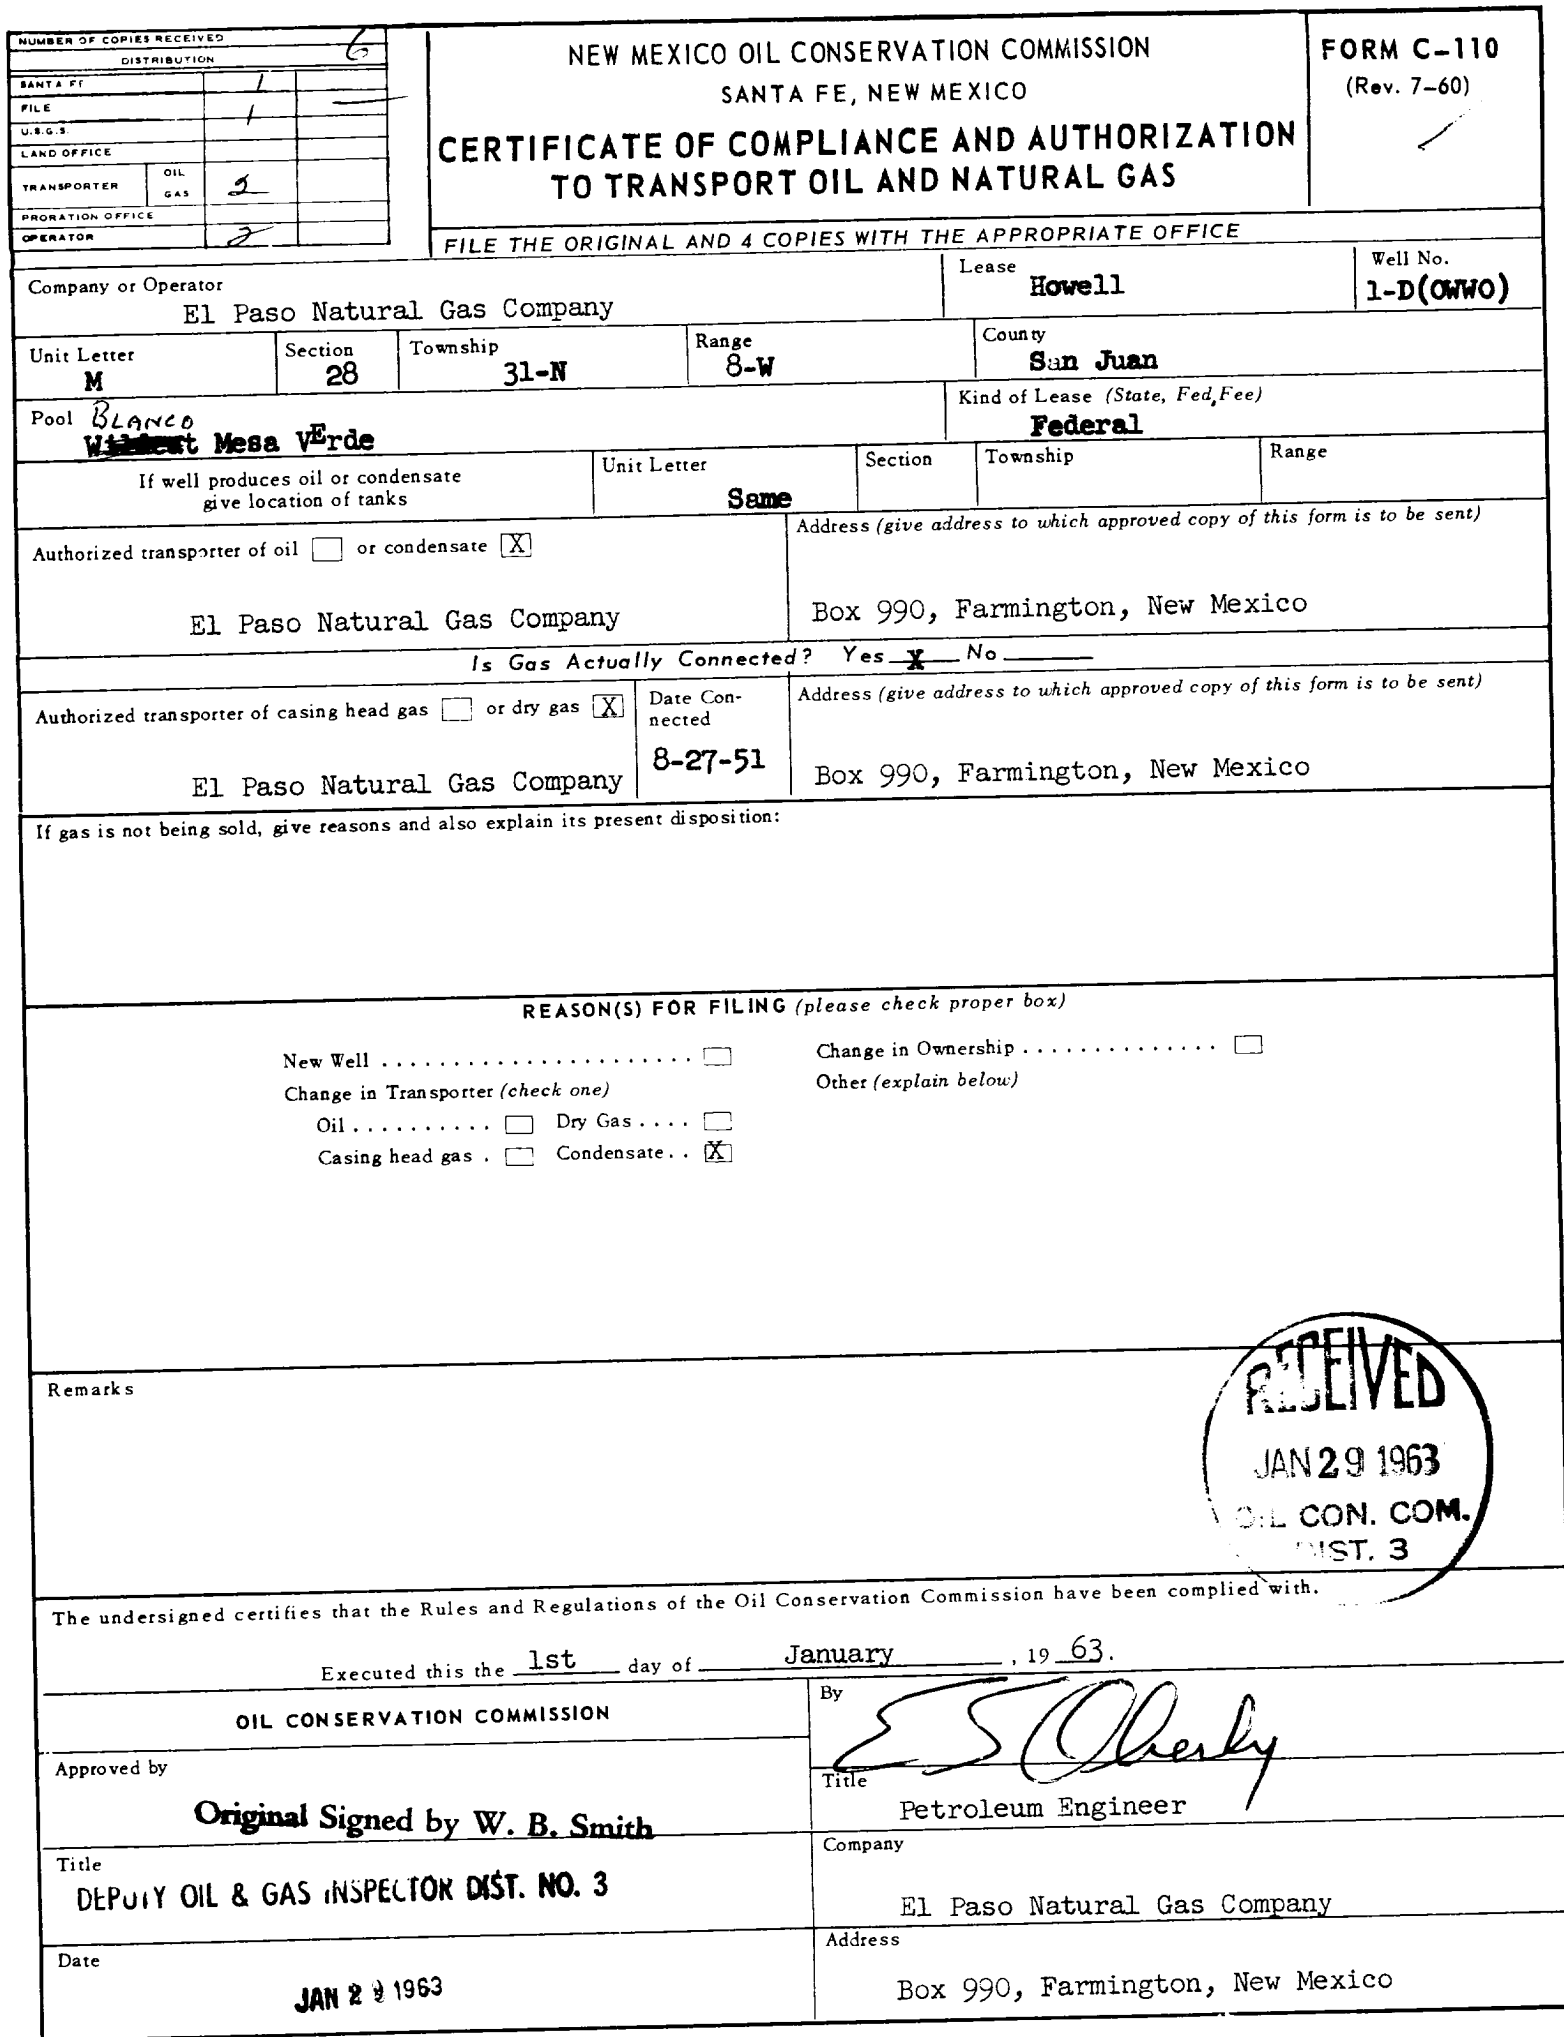 NUMBER OF COPIES RECEIVED 6
DISTRIBUTION
SANTA FE 1
FILE 1
U.S.G.S.
LAND OFFICE
TRANSPORTER OIL
GAS 2
PRORATION OFFICE
OPERATOR 2
NEW MEXICO OIL CONSERVATION COMMISSION
SANTA FE, NEW MEXICO
CERTIFICATE OF COMPLIANCE AND AUTHORIZATION
TO TRANSPORT OIL AND NATURAL GAS
FILE THE ORIGINAL AND 4 COPIES WITH THE APPROPRIATE OFFICE
FORM C-110
(Rev. 7-60)
Company or Operator
El Paso Natural Gas Company
Lease
Howell
Well No.
1-D(OWWO)
Unit Letter
M
Section
28
Township
31-N
Range
8-W
County
San Juan
Pool BLANCO
Wildcat Mesa VErde
Kind of Lease (State, Fed, Fee)
Federal
If well produces oil or condensate
give location of tanks
Unit Letter
Same
Section
Township
Range
Authorized transporter of oil or condensate X
El Paso Natural Gas Company
Address (give address to which approved copy of this form is to be sent)
Box 990, Farmington, New Mexico
Is Gas Actually Connected? Yes X No
Authorized transporter of casing head gas or dry gas X
El Paso Natural Gas Company
Date Con-
nected
8-27-51
Address (give address to which approved copy of this form is to be sent)
Box 990, Farmington, New Mexico
If gas is not being sold, give reasons and also explain its present disposition:
REASON(S) FOR FILING (please check proper box)
New Well . . . . . . . . . . . . . . . . . . . . . .
Change in Ownership . . . . . . . . . . . . . .
Change in Transporter (check one)
Other (explain below)
Oil . . . . . . . . . . Dry Gas . . . .
Casing head gas . Condensate . . X
Remarks
RECEIVED
JAN 29 1963
OIL CON. COM.
DIST. 3
The undersigned certifies that the Rules and Regulations of the Oil Conservation Commission have been complied with.
Executed this the 1st day of January , 19 63.
OIL CONSERVATION COMMISSION
Approved by
Original Signed by W. B. Smith
Title
DEPUTY OIL & GAS INSPECTOR DIST. NO. 3
Date
JAN 29 1963
By
E S Oberly
Title
Petroleum Engineer
Company
El Paso Natural Gas Company
Address
Box 990, Farmington, New Mexico